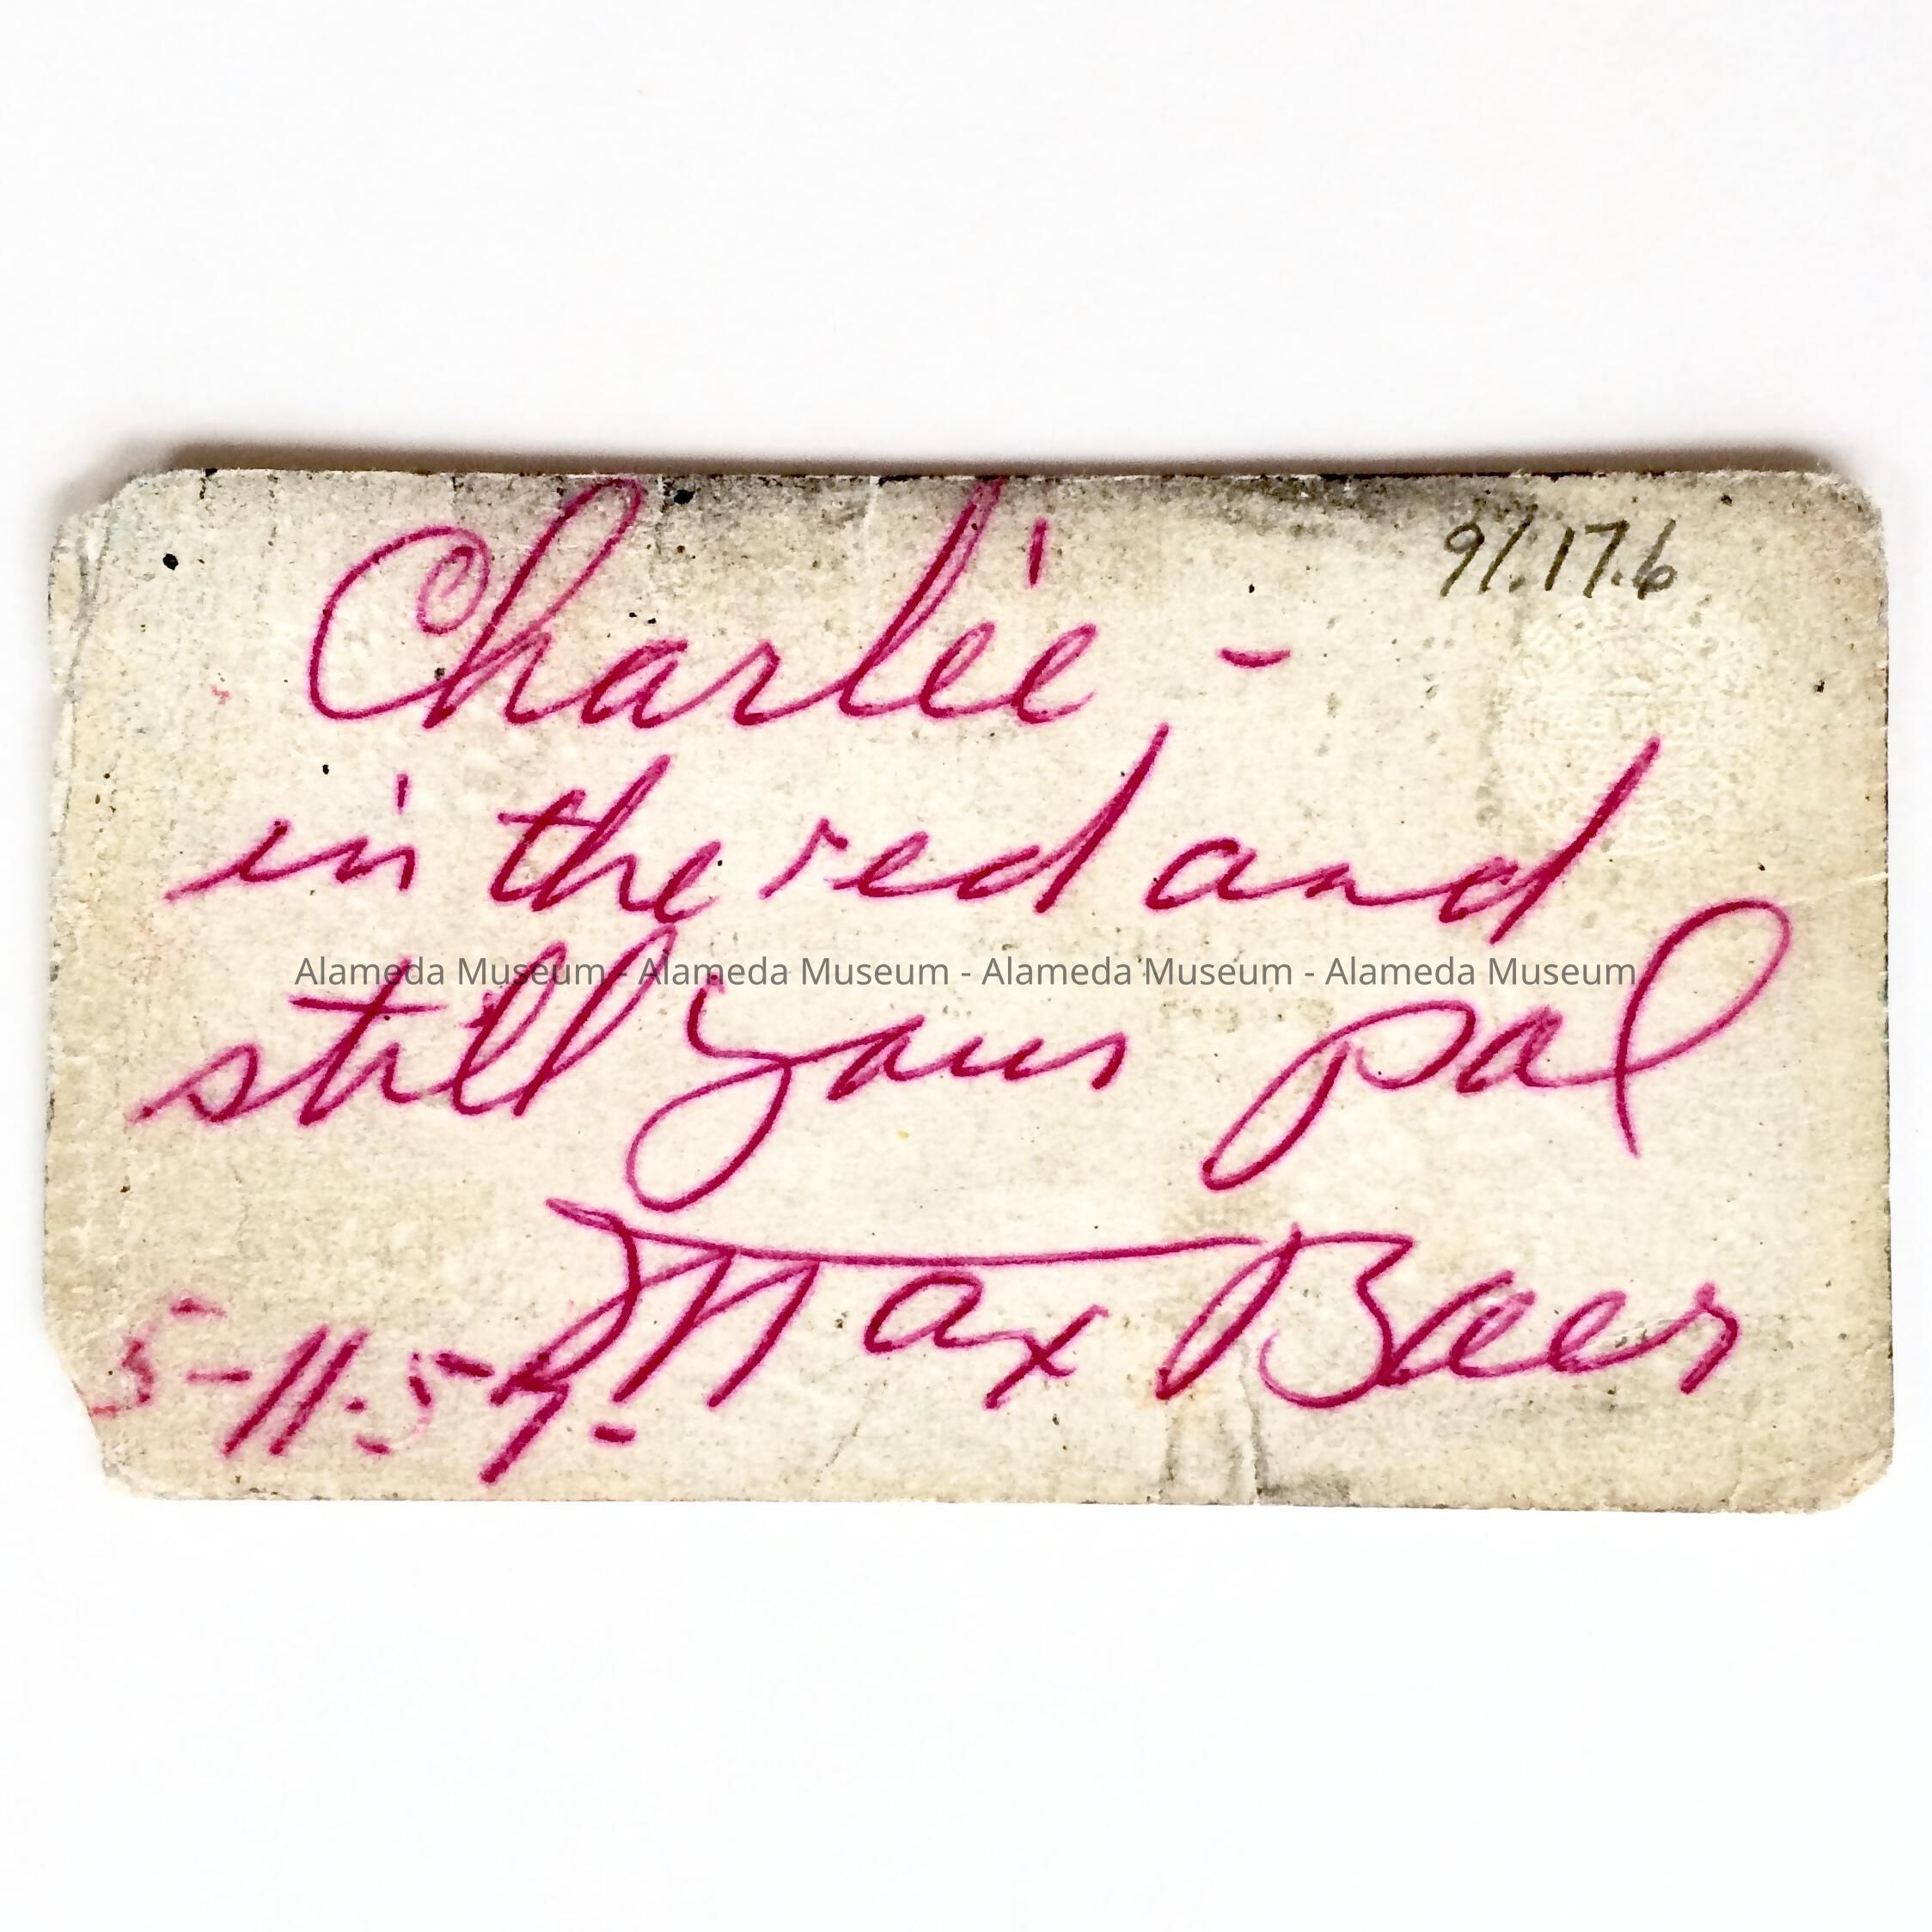 91.17.6
Charlie -
in the red and
still your pal
Alameda Museum - Alameda Museum - Alameda Museum - Alameda Museum
Max Baer
5-11-57-